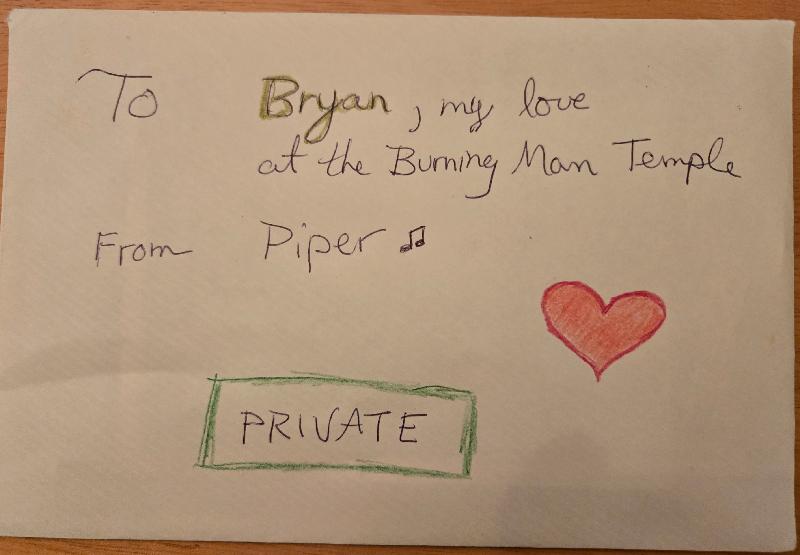 To Bryan, my love
at the Burning Man Temple
From Piper ♫
PRIVATE